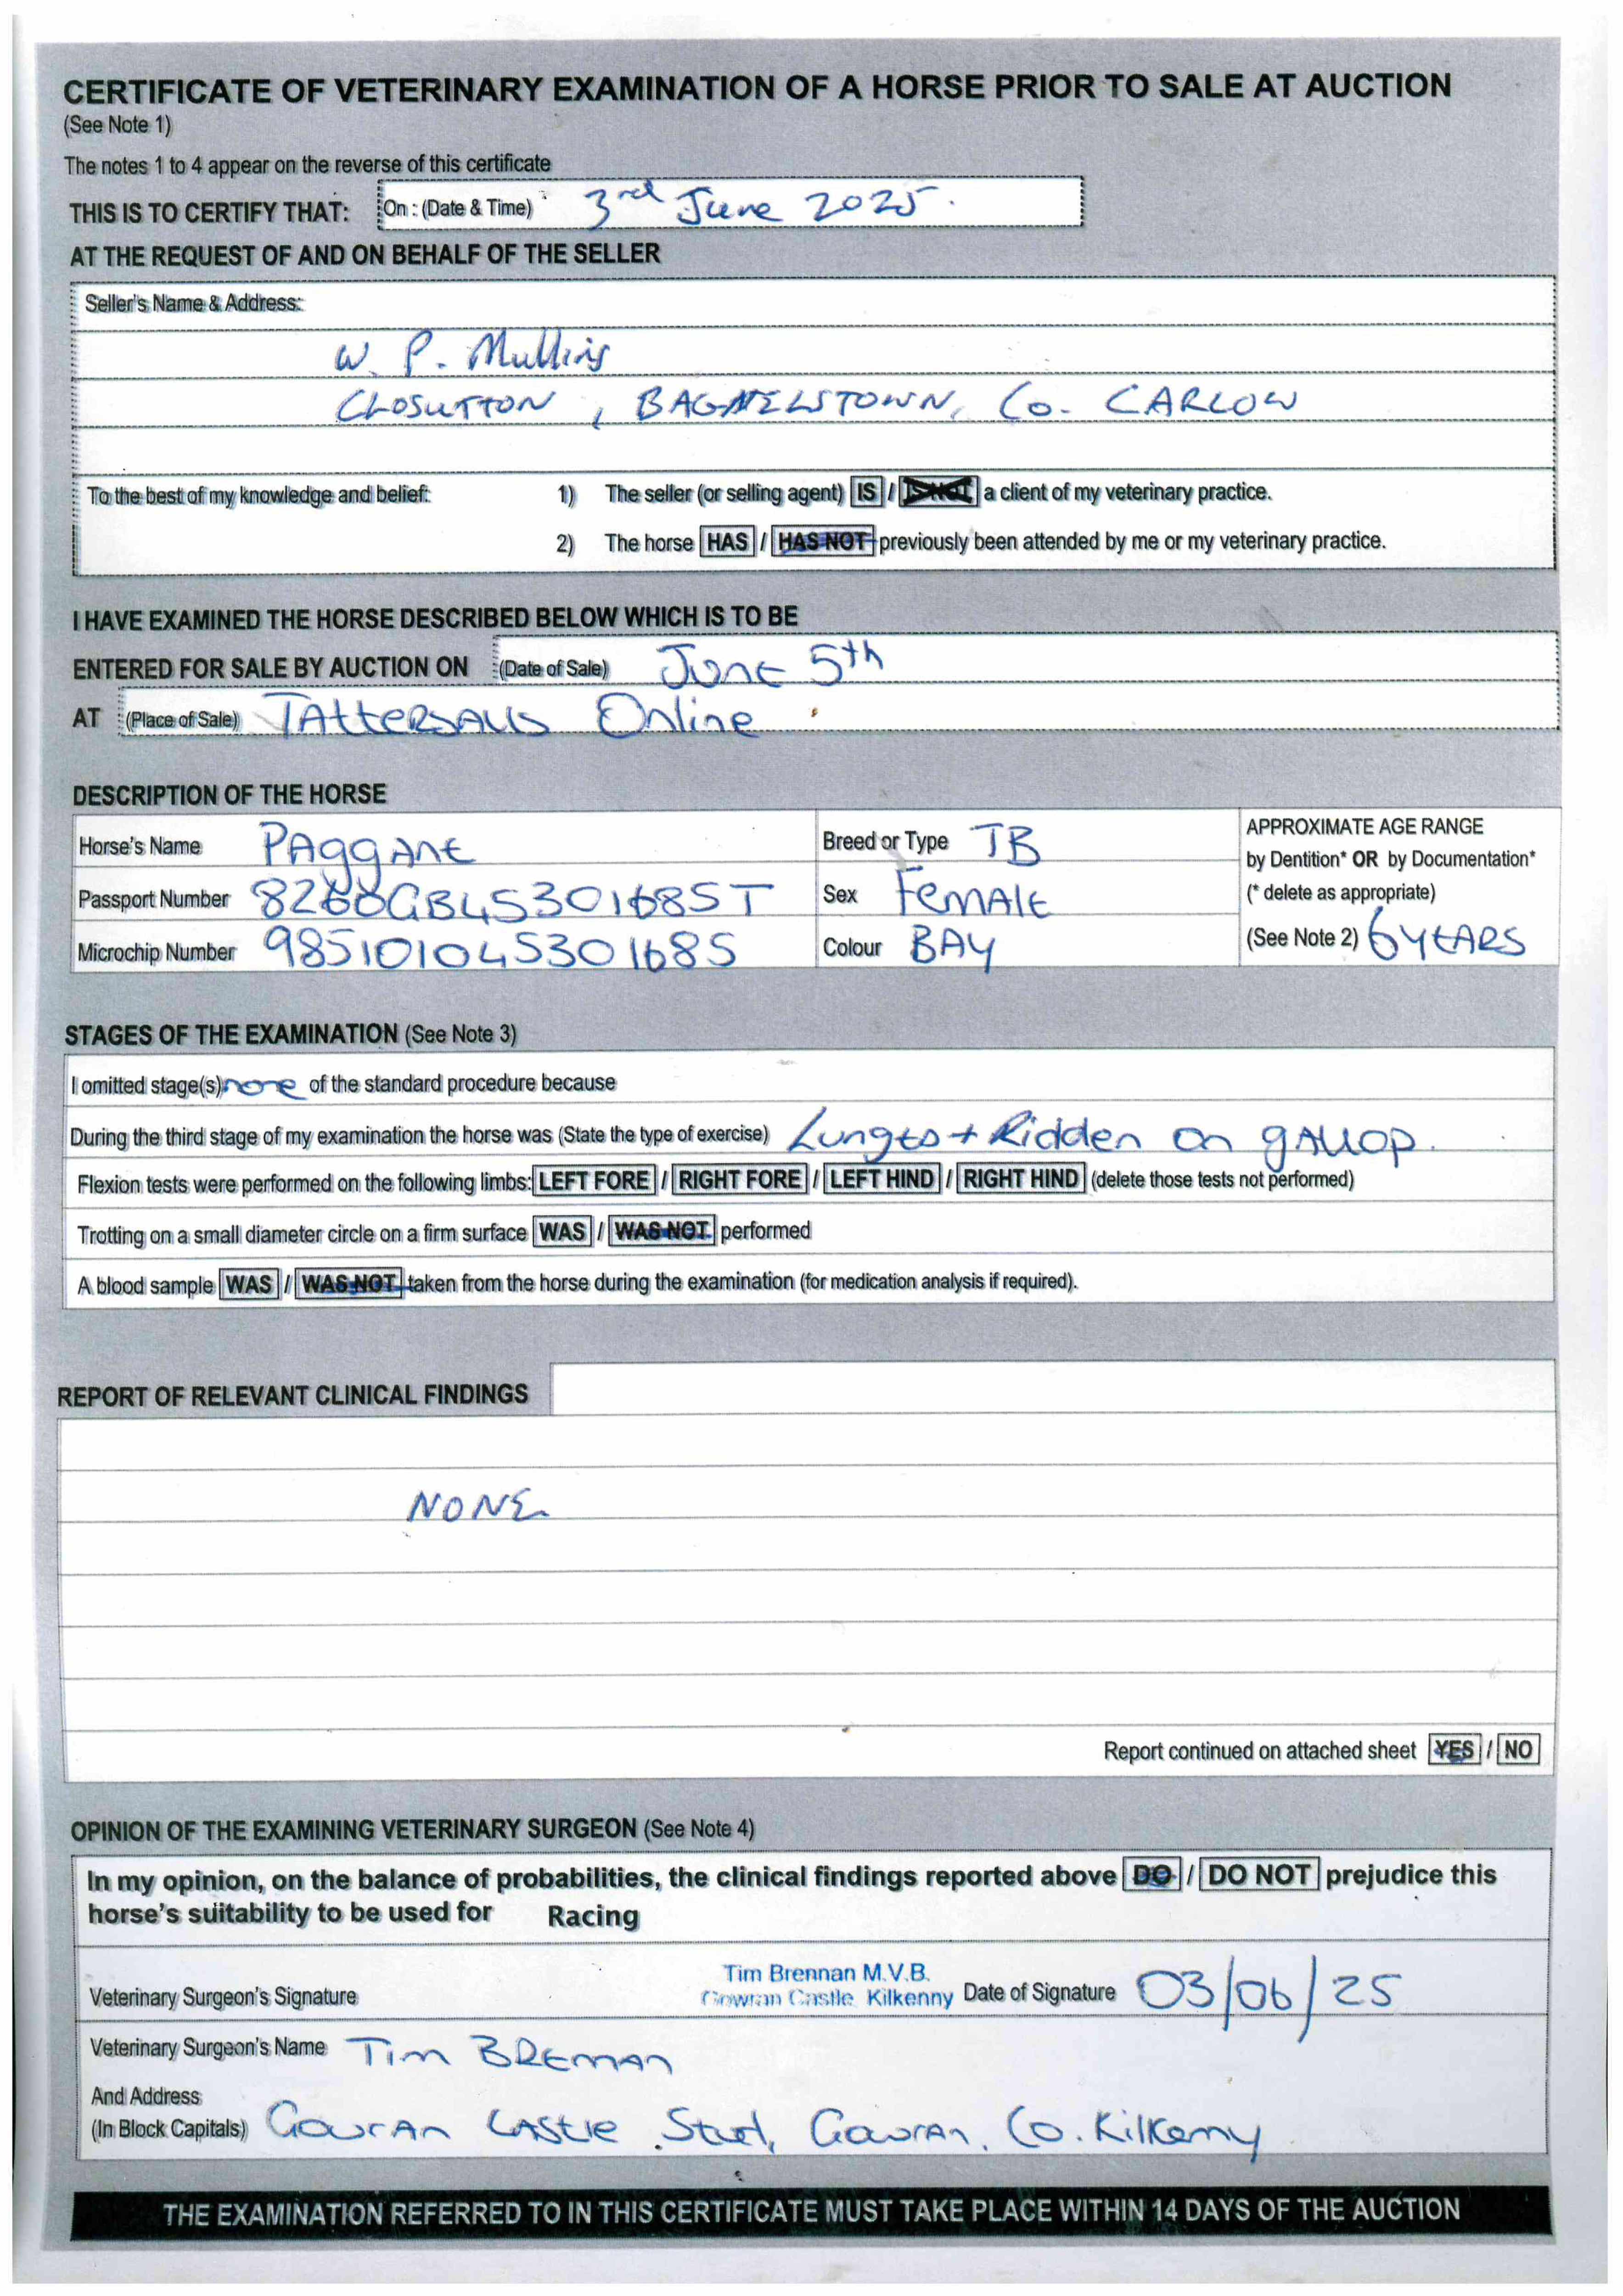 CERTIFICATE OF VETERINARY EXAMINATION OF A HORSE PRIOR TO SALE AT AUCTION
(See Note 1)
The notes 1 to 4 appear on the reverse of this certificate
THIS IS TO CERTIFY THAT: On : (Date & Time) 3rd June 2025.
AT THE REQUEST OF AND ON BEHALF OF THE SELLER
Seller's Name & Address:
W. P. Mullins
CLOSUTTON, BAGNELSTOWN, Co. CARLOW
To the best of my knowledge and belief: 1) The seller (or selling agent) IS / IS NOT a client of my veterinary practice.
2) The horse HAS / HAS NOT previously been attended by me or my veterinary practice.
I HAVE EXAMINED THE HORSE DESCRIBED BELOW WHICH IS TO BE
ENTERED FOR SALE BY AUCTION ON (Date of Sale) June 5th
AT (Place of Sale) TATTERSALLS Online
DESCRIPTION OF THE HORSE
Horse's Name PAggANE Breed or Type TB APPROXIMATE AGE RANGE
by Dentition* OR by Documentation*
Passport Number 8260GB45301685T Sex Female (* delete as appropriate)
Microchip Number 985101045301685 Colour BAY (See Note 2) 6 YEARS
STAGES OF THE EXAMINATION (See Note 3)
I omitted stage(s) none of the standard procedure because
During the third stage of my examination the horse was (State the type of exercise) Lunged + Ridden on gallop.
Flexion tests were performed on the following limbs: LEFT FORE / RIGHT FORE / LEFT HIND / RIGHT HIND (delete those tests not performed)
Trotting on a small diameter circle on a firm surface WAS / WAS NOT performed
A blood sample WAS / WAS NOT taken from the horse during the examination (for medication analysis if required).
REPORT OF RELEVANT CLINICAL FINDINGS
NONE
Report continued on attached sheet YES / NO
OPINION OF THE EXAMINING VETERINARY SURGEON (See Note 4)
In my opinion, on the balance of probabilities, the clinical findings reported above DO / DO NOT prejudice this
horse's suitability to be used for Racing
Tim Brennan M.V.B.
Veterinary Surgeon's Signature Gowran Castle Kilkenny Date of Signature 03/06/25
Veterinary Surgeon's Name Tim BRennan
And Address
(In Block Capitals) Gowran Castle Stud, Gowran, Co. Kilkenny
THE EXAMINATION REFERRED TO IN THIS CERTIFICATE MUST TAKE PLACE WITHIN 14 DAYS OF THE AUCTION